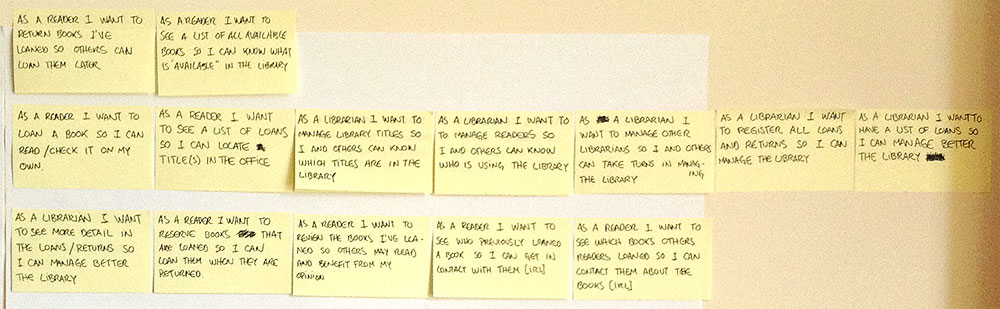 AS A READER I WANT TO
RETURN BOOKS I'VE
LOANED SO OTHERS CAN
LOAN THEM LATER
AS A READER I WANT TO
SEE A LIST OF ALL AVAILABLE
BOOKS SO I CAN KNOW WHAT
IS "AVAILABLE" IN THE LIBRARY
AS A READER I WANT TO
LOAN A BOOK SO I CAN
READ/CHECK IT ON MY
OWN.
AS A READER I WANT
TO SEE A LIST OF LOANS
SO I CAN LOCATE
TITLE(S) IN THE OFFICE
AS A LIBRARIAN I WANT TO
MANAGE LIBRARY TITLES SO
I AND OTHERS CAN KNOW
WHICH TITLES ARE IN THE
LIBRARY
AS A LIBRARIAN I WANT TO
TO MANAGE READERS SO
I AND OTHERS CAN KNOW
WHO IS USING THE LIBRARY
AS A LIBRARIAN I
WANT TO MANAGE OTHER
LIBRARIANS SO I AND OTHERS
CAN TAKE TURNS IN MANAG-
THE LIBRARY ING
AS A LIBRARIAN I WANT
TO REGISTER ALL LOANS
AND RETURNS SO I CAN
MANAGE THE LIBRARY
AS A LIBRARIAN I WANT TO
HAVE A LIST OF LOANS SO
I CAN MANAGE BETTER
THE LIBRARY
AS A LIBRARIAN I WANT
TO SEE MORE DETAIL IN
THE LOANS/RETURNS SO
I CAN MANAGE BETTER
THE LIBRARY
AS A READER I WANT TO
RESERVE BOOKS THAT
ARE LOANED SO I CAN
LOAN THEM WHEN THEY ARE
RETURNED.
AS A READER I WANT TO
REVIEW THE BOOKS I'VE LOA-
NED SO OTHERS MAY READ
AND BENEFIT FROM MY
OPINION
AS A READER I WANT TO
SEE WHO PREVIOUSLY LOANED
A BOOK SO I CAN GET IN
CONTACT WITH THEM [IRL]
AS A READER I WANT TO
SEE WHICH BOOKS OTHERS
READERS LOANED SO I CAN
CONTACT THEM ABOUT THE
BOOKS [IRL]